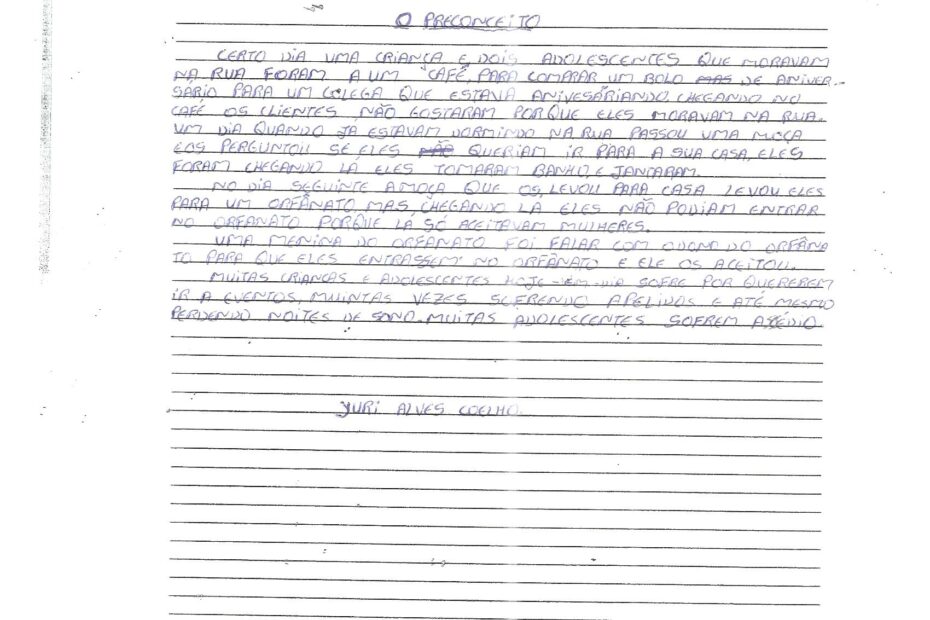 O PRECONCEITO
CERTO DIA UMA CRIANÇA E DOIS ADOLESCENTES QUE MORAVAM
NA RUA FORAM A UM CAFÉ, PARA COMPRAR UM BOLO MAS DE ANIVER-
SARIO PARA UM COLEGA QUE ESTAVA ANIVESÁRIANDO, CHEGANDO NO
CAFÉ OS CLIENTES NÃO GOSTARAM PORQUE ELES MORAVAM NA RUA.
UM DIA QUANDO JA ESTAVAM DORMINDO NA RUA PASSOU UMA MOÇA
E OS PERGUNTOU SE ELES NÃO QUERIAM IR PARA A SUA CASA, ELES
FORAM CHEGANDO LÁ ELES TOMARAM BANHO E JANTARAM.
NO DIA SEGUINTE A MOÇA QUE OS LEVOU PARA CASA LEVOU ELES
PARA UM ORFÂNATO MAS, CHEGANDO LÁ ELES NÃO PODIAM ENTRAR
NO ORFANATO PORQUE LÁ SÓ ACEITAVAM MULHERES.
UMA MENINA DO ORFANATO FOI FALAR COM O DONO DO ORFÂNA
TO PARA QUE ELES ENTRASSEM NO ORFÂNATO E ELE OS ACEITOU.
MUITAS CRIANÇAS E ADOLESCENTES HOJE-EM-DIA SOFRE POR QUEREREM
IR A EVENTOS, MUINTAS VEZES SOFRENDO APELIDOS E ATÉ MESMO
PERDENDO NOITES DE SONO. MUITAS ADOLESCENTES SOFREM ASSÉDIO.
YURI ALVES COELHO.